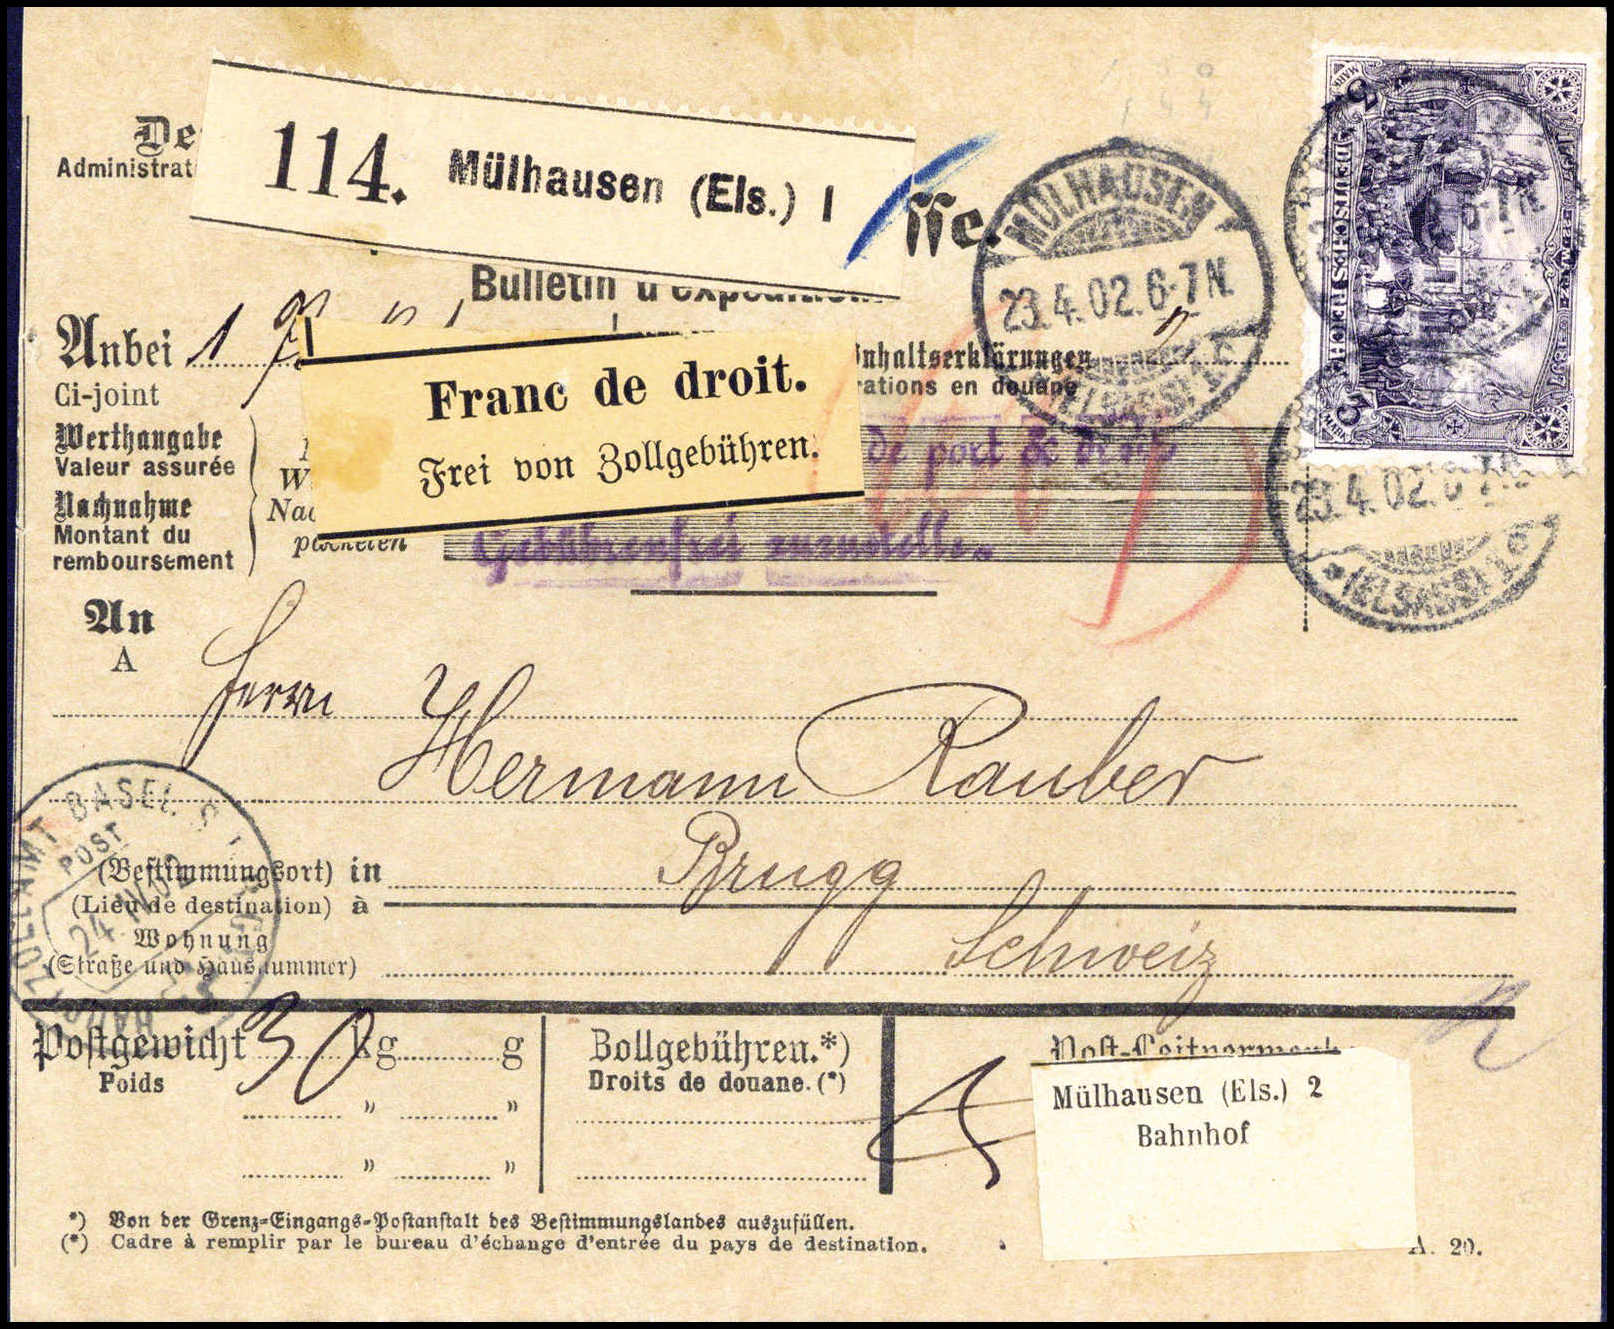 De
Administrat
114. Mülhausen (Els.) 1
sse.
MÜLHAUSEN
23.4.02.6-7N.
(ELSASS) 1.
Bulletin d'expédition
DEUTSCHES REICH
Anbei 1
Ci-joint
Inhaltserklärungen
rations en douane
Franc de droit.
Frei von Zollgebühren.
Werthangabe
Valeur assurée
W
de port & droits
Nachnahme
Montant du
remboursement
Nac
packeten
Gebührenfrei zuzustellen.
23.4.02.6-7N.
(ELSASS) 1.
An
A
Herrn
Hermann Rauber
HAUPTZOLLAMT BASEL S.
POST
24 IV 02
(Bestimmungsort) in Brugg
(Lieu de destination) à
Wohnung
(Straße und Hausnummer) Schweiz
Postgewicht 30 kg g
Poids
" "
" "
Zollgebühren.*)
Droits de douane.(*)
5
Post-Leitvermerk
Mülhausen (Els.) 2
Bahnhof
*) Von der Grenz-Eingangs-Postanstalt des Bestimmungslandes auszufüllen.
(*) Cadre à remplir par le bureau d'échange d'entrée du pays de destination.
A. 20.